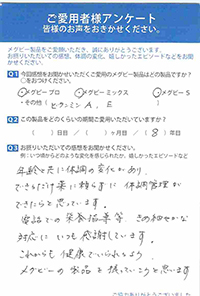 ご愛用者様アンケート
皆様のお声をおきかせください。
メグビー製品をご愛顧いただき、誠にありがとうございます。
お摂りいただいての感想、体調の変化、嬉しかったエピソードなどを
お聞かせください。
Q1 今回感想をお聞かせいただくご愛用のメグビー製品はどの製品ですか?
○をつけてください。
・メグビープロ ・メグビーミックス ・メグビーS
・その他( ビタミンA、E )
Q2 この製品をどのくらいの期間ご愛用いただいていますか?
( )日 / ( )ヶ月 / ( 8 )年目
Q3 お摂りいただいての感想をお聞かせください。
例:いつ頃からどのような変化を感じられたか、嬉しかったエピソードなど
年齢と共に体調の変化があり、
できるだけ薬に頼らずに体調管理が
できたらと思っています。
電話での栄養指導等、きめ細やかな
対応にいつも感謝しています。
これからも健康でいられるよう、
メグビーの製品を摂っていこうと思います
ご協力ありがとうございました